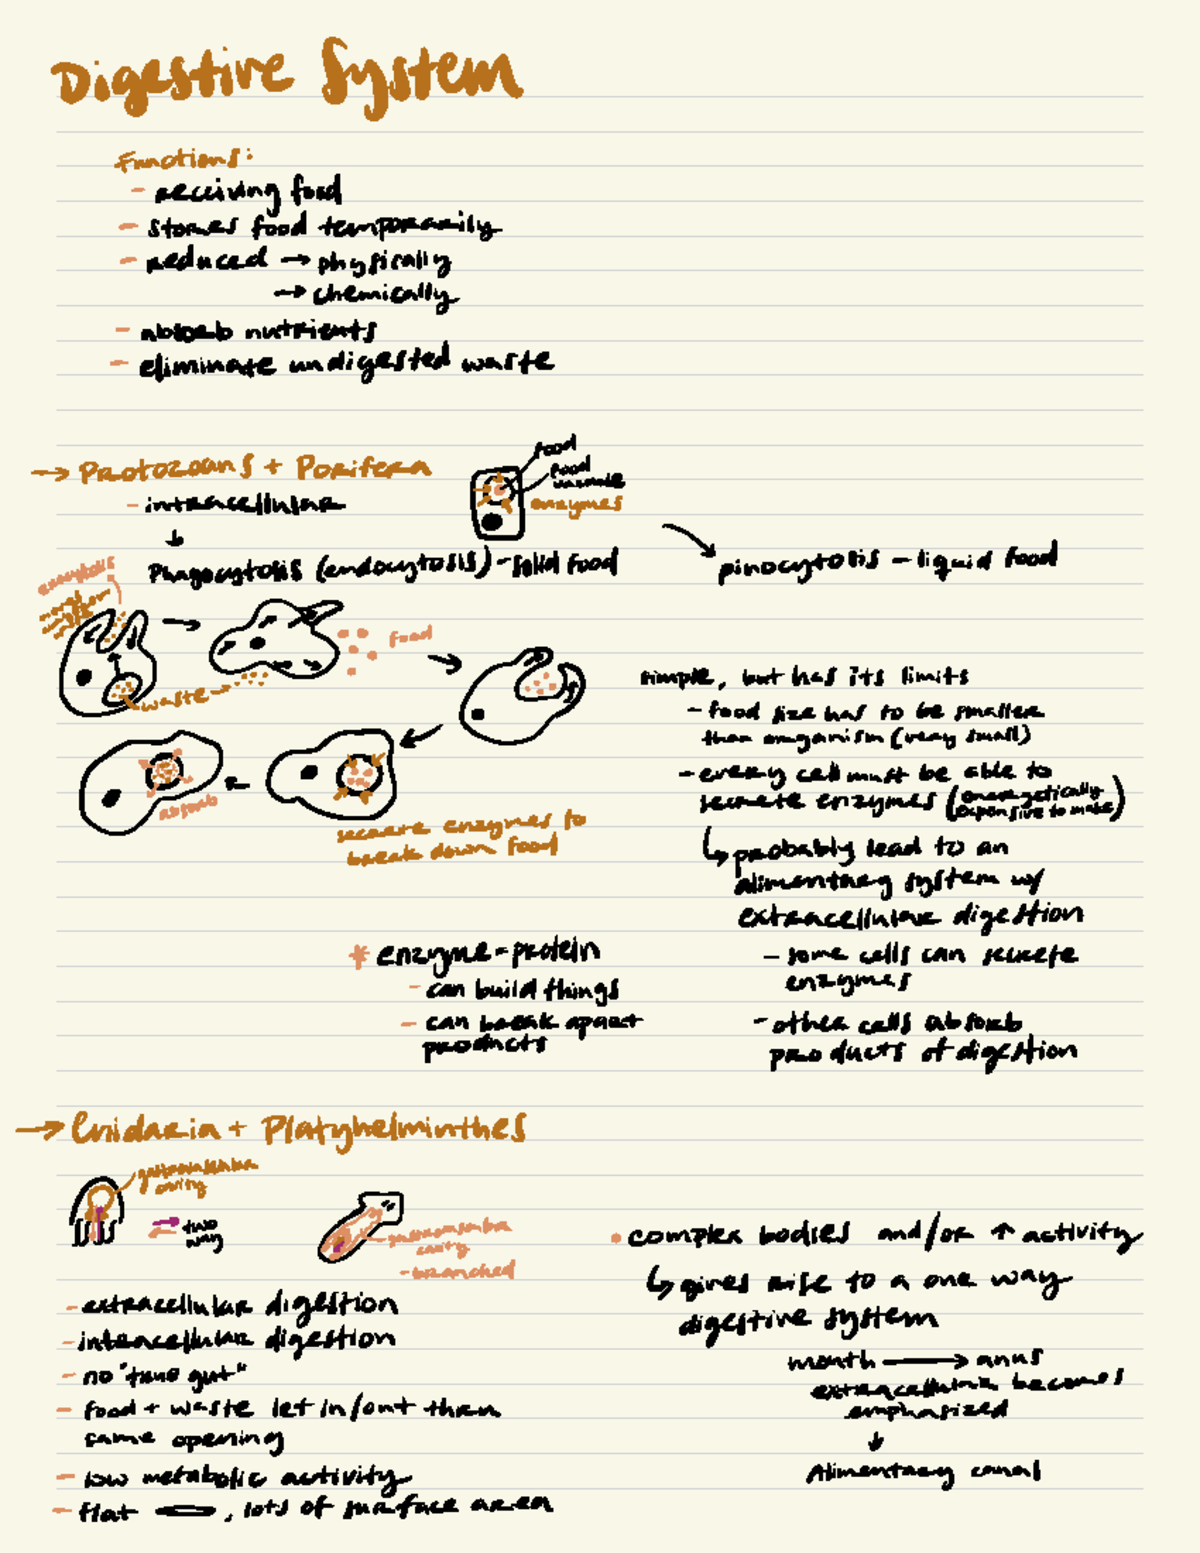 Digestive System
Functions:
- receiving food
- stores food temporarily
- reduced → physically
→ chemically
- absorb nutrients
- eliminate undigested waste
→ Protozoans + Porifera
- intracellular
food
food vacuole
enzymes
↓
Phagocytosis (endocytosis) - solid food
pinocytosis - liquid food
exocytosis
food
waste →
absorb
secrete enzymes to
break down food
simple, but has its limits
- food size has to be smaller
than organism (very small)
- every cell must be able to
secrete enzymes (energetically
expensive to make)
↳ probably lead to an
alimentary system w/
extracellular digestion
- some cells can secrete
enzymes
- other cells absorb
products of digestion
* enzyme = protein
- can build things
- can break apart
products
→ Cnidaria + Platyhelminthes
gastrovascular
cavity
two
way
gastrovascular
cavity
- branched
- extracellular digestion
- intracellular digestion
- no "true gut"
- food + waste let in/out thru
same opening
- low metabolic activity
- flat , lots of surface area
• complex bodies and/or ↑ activity
↳ gives rise to a one way
digestive system
mouth → anus
extracellular becomes
emphasized
↓
Alimentary canal